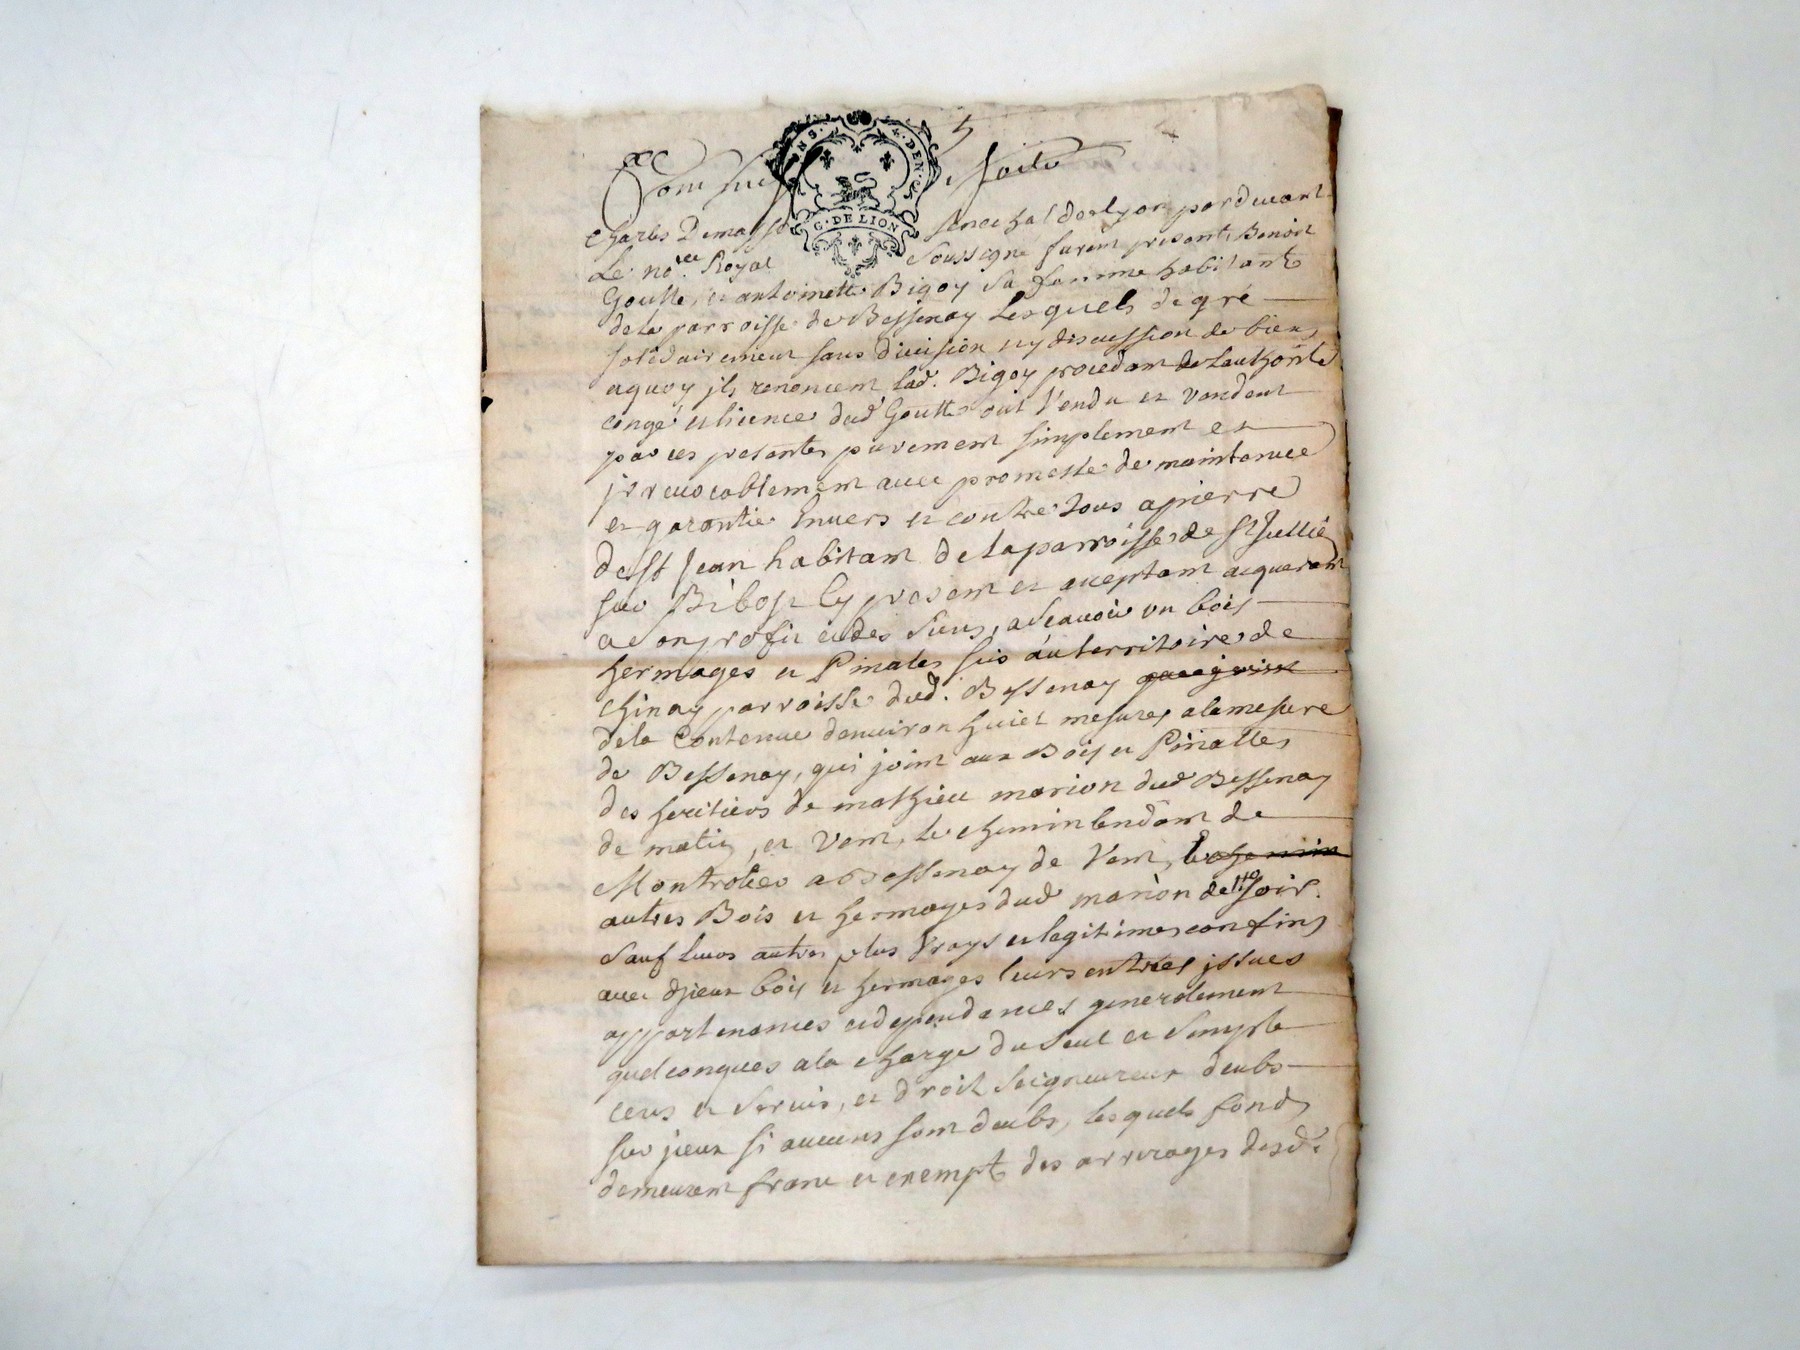 G. DE LION
charles Demasso senechal de lyon pardevant
Le no.re Royal soussigne furent presents Benoit
Goutte, et antoinette Bigoy sa femme habitants
de la parroisse de Bessenay Lesquels de gré
solidairement sans division ny discussion de biens
aquoy jls renoncent lad. Bigoy procedant de lauthorité
congé et licence dud Goutte ont Vendu et vendent
par ces presentes purement simplement et
jrrevocablement avec promesse de maintenue
et garantie Envers et contre tous a pierre
de st Jean habitant de la parroisse de st Jullie
sur Bibost Cy present et aceptant aquerant
a son profit et des siens, a scavoir un bois
hermages et Pinates sis au territoire de
chinay parroisse dud. Bessenay
de la Contenue denviron huict mesures ala mesure
de Bessenay, qui joint aux Bois et Pinattes
des heritiers de mathieu marion dud Bessenay
de matin, et Vent, le chemin tendant de
Montrotier a Bessenay de Vent, le chemin
autres Bois et hermages dud marion de soir.
sauf leurs autres plus Vrays et legitimes confins
avec djceux bois et hermages leurs entrées jssues
appartenances et dependances generalement
quelconques ala charge du seul et simple
cens et servis, et droit seigneureux deubs
sur jceux si aucuns sont deubs, lesquels fonds
demeurent franc et exempts des arrerages desd.